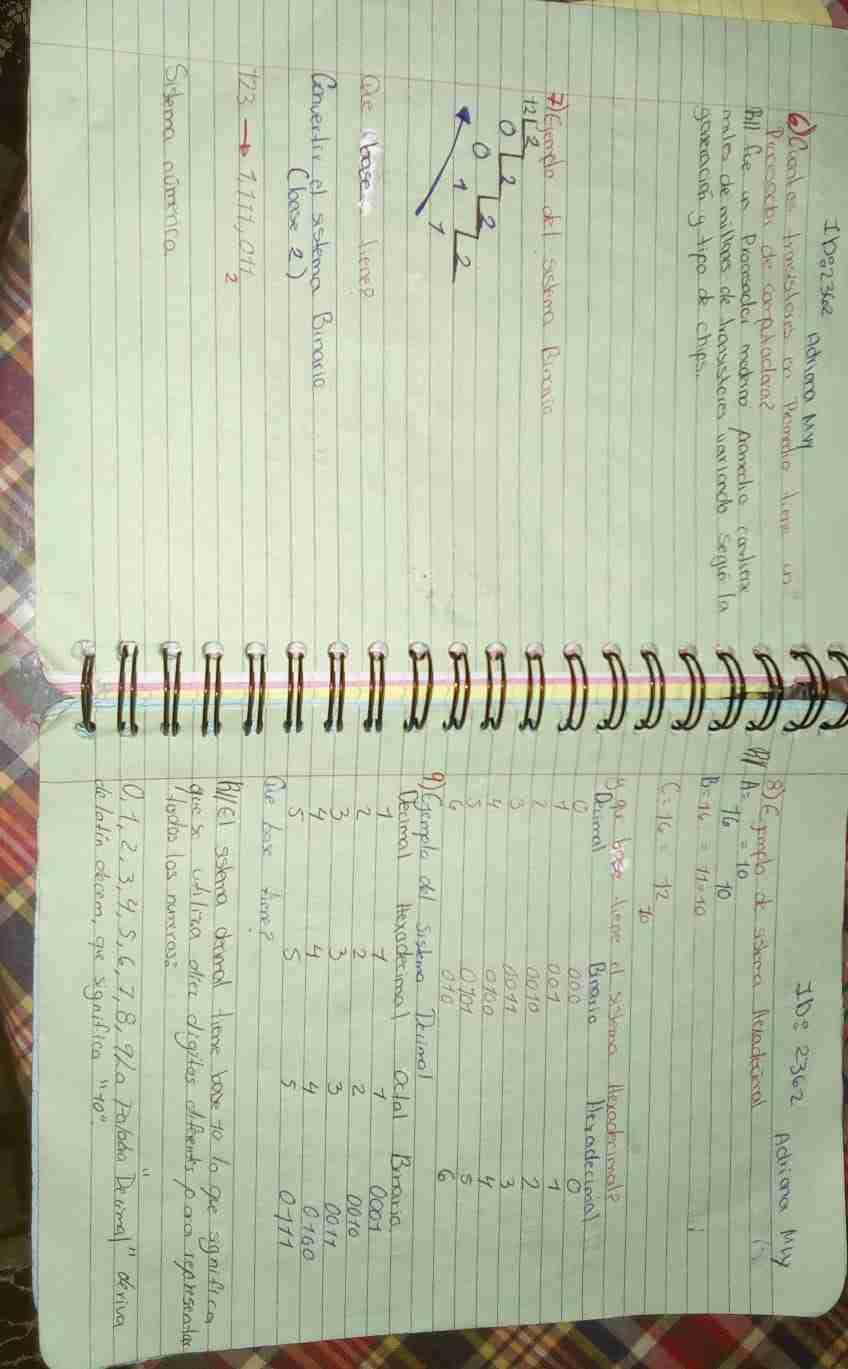 ID:2362 Adriana My
6) Cuantos transistores en Promedio tiene un
Procesador de computadora?
R// fue un Procesador moderno promedio contiene
miles de millones de transistores variando según la
generación y tipo de chips.
7) Ejemplo del sistema Binario
12 2
0 2
0 2
1 2
1
Que base tiene?
Convertir el sistema Binario
(base 2)
123 → 1,111,011
2
Sistema númerica
ID: 2362 Adriana My
8) Ejemplo de sistema Hexadecimal
R// A= 16 = 10
10
B=16 = 11=10
C= 16 = 12
10
y que base tiene el sistema Hexadecimal?
Decimal Binario Hexadecimal
0 000 0
1 001 1
2 0010 2
3 0011 3
4 0100 4
5 0101 5
6 010 6
9) Ejemplo del Sistema Decimal
Decimal Hexadecimal Octal Binario
1 1 1 0001
2 2 2 0010
3 3 3 0011
4 4 4 0100
5 5 5 0111
Que base tiene?
R// El sistema decimal tiene base 10 lo que significa
que se utiliza diez digitos diferentes para representar
todos los numeros:
0, 1, 2, 3, 4, 5, 6, 7, 8, 9 La Palabra "Decimal" deriva
de latín decem, que significa "10".